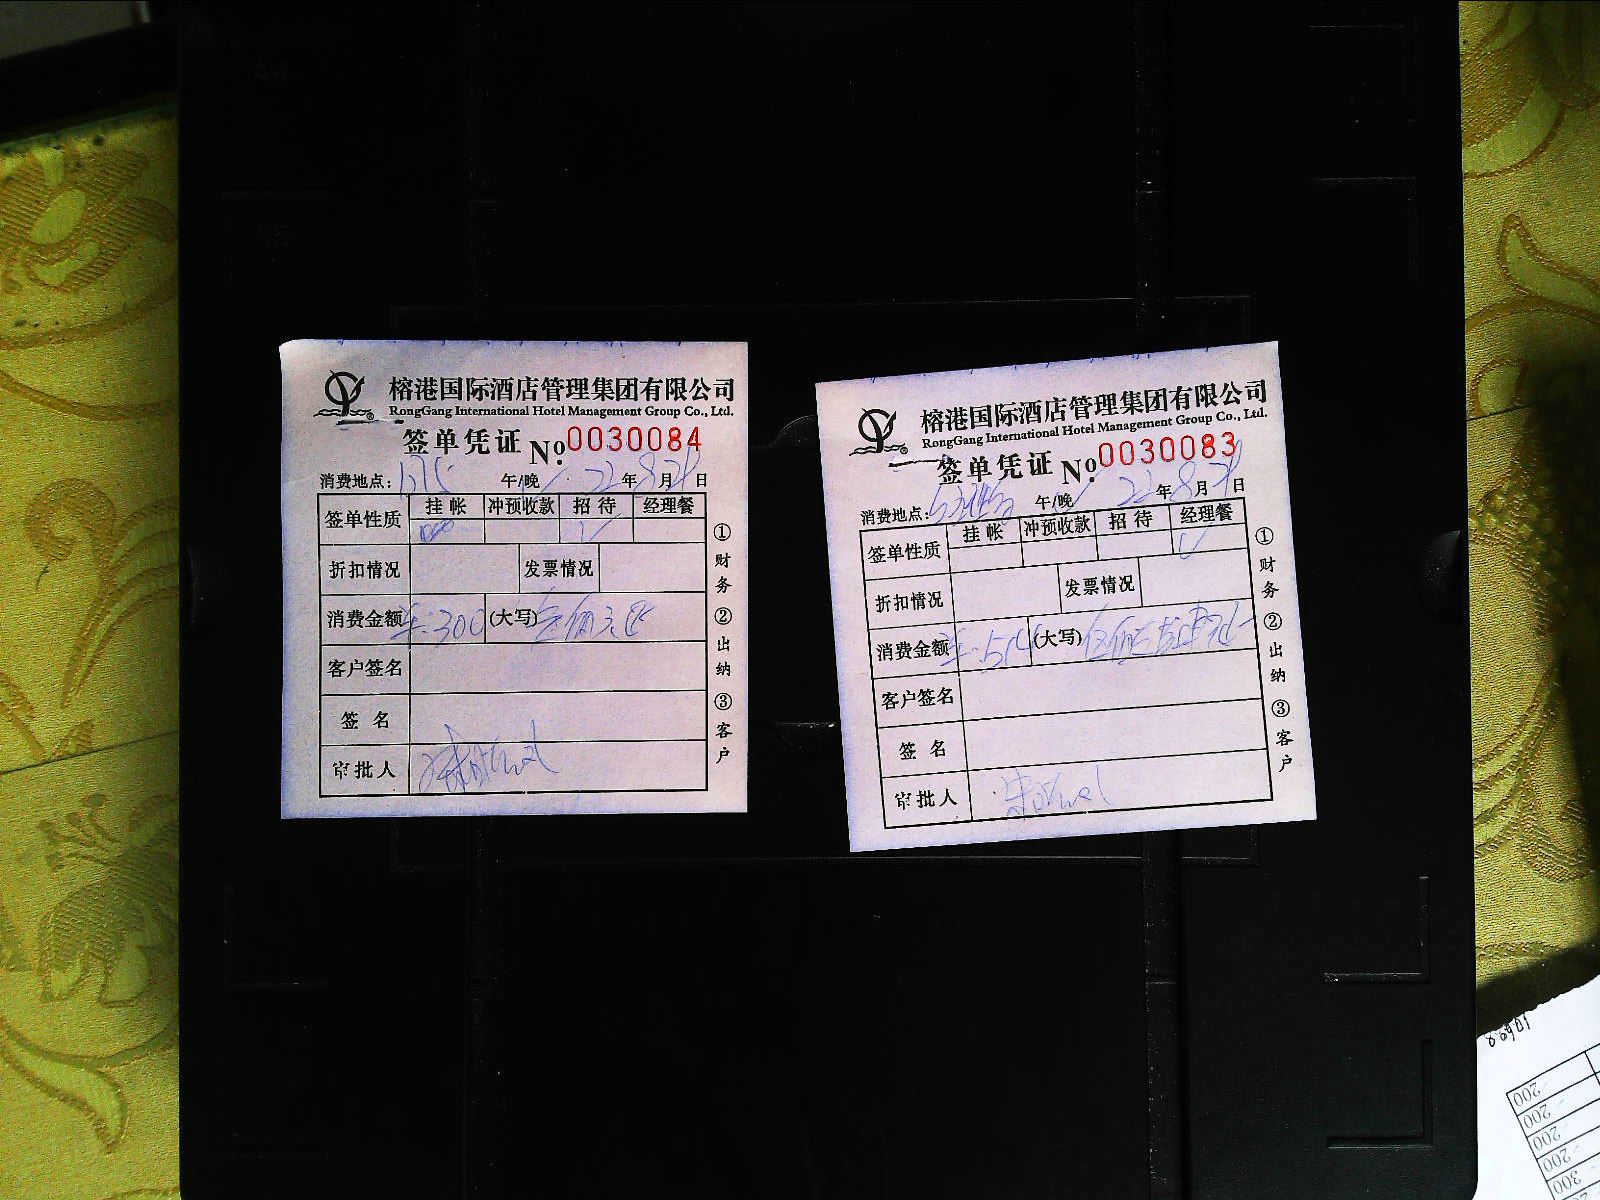 榕港国际酒店管理集团有限公司
RongGang International Hotel Management Group Co., Ltd.
签单凭证 No. 0030084
消费地点: 午/晚 22年8月 日
签单性质 挂帐 冲预收款 招待 经理餐
折扣情况 发票情况
消费金额 300 (大写)
客户签名
签名
审批人
①财务 ②出纳 ③客户
榕港国际酒店管理集团有限公司
RongGang International Hotel Management Group Co., Ltd.
签单凭证 No. 0030083
消费地点: 午/晚 22年8月 日
签单性质 挂帐 冲预收款 招待 经理餐
折扣情况 发票情况
消费金额 (大写)
客户签名
签名
审批人
①财务 ②出纳 ③客户
200
200
200
200
300